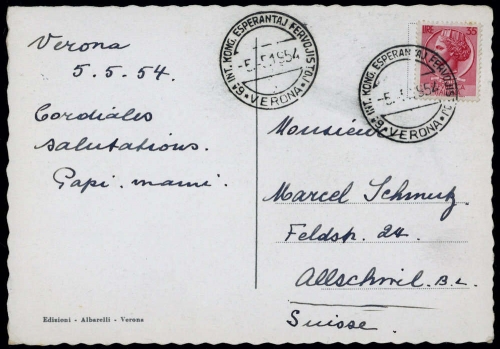 Verona
5.5.54.
Cordiales
salutations.
Papi. mami.
6º INT. KONG. ESPERANTAJ FERVOJISTOJ
-5.-5.1954
VERONA
6º INT. KONG. ESPERANTAJ FERVOJISTOJ
-5.-5.1954
VERONA
LIRE 35
Monsieur
Marcel Schmutz
Feldstr. 24.
Allschwil. B.L.
Suisse.
Edizioni - Albarelli - Verona